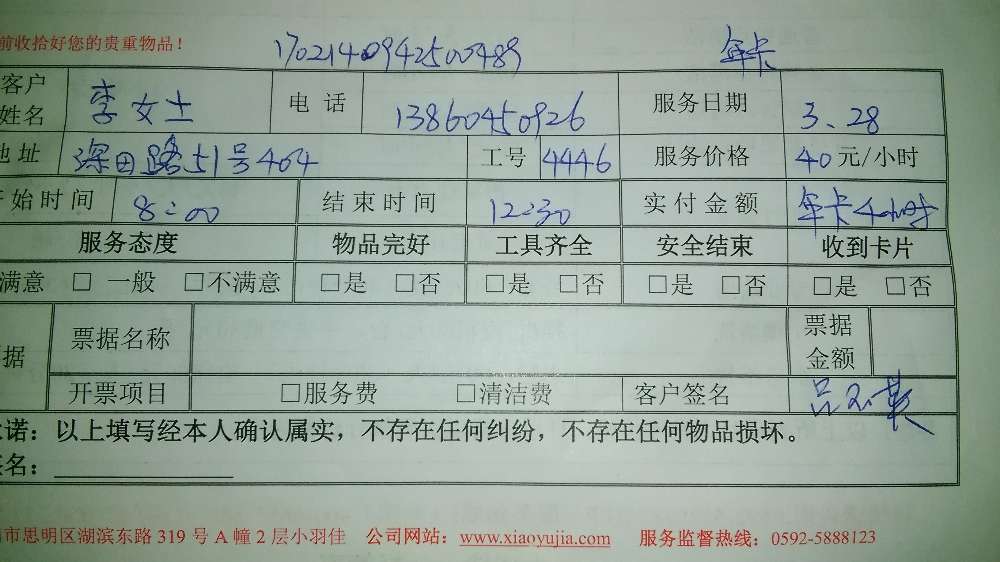 前收拾好您的贵重物品！
1702140942500489 年卡
客户姓名 李女士 电话 13860450926 服务日期 3.28
地址 深田路51号404 工号 4446 服务价格 40元/小时
开始时间 8:00 结束时间 12:30 实付金额 年卡4小时
服务态度 物品完好 工具齐全 安全结束 收到卡片
满意 □ 一般 □不满意 □是 □否 □是 □否 □是 □否 □是 □否
据 票据名称 票据金额
开票项目 □服务费 □清洁费 客户签名
诺：以上填写经本人确认属实，不存在任何纠纷，不存在任何物品损坏。
名：
市思明区湖滨东路 319 号 A 幢 2 层小羽佳 公司网站：www.xiaoyujia.com 服务监督热线：0592-5888123